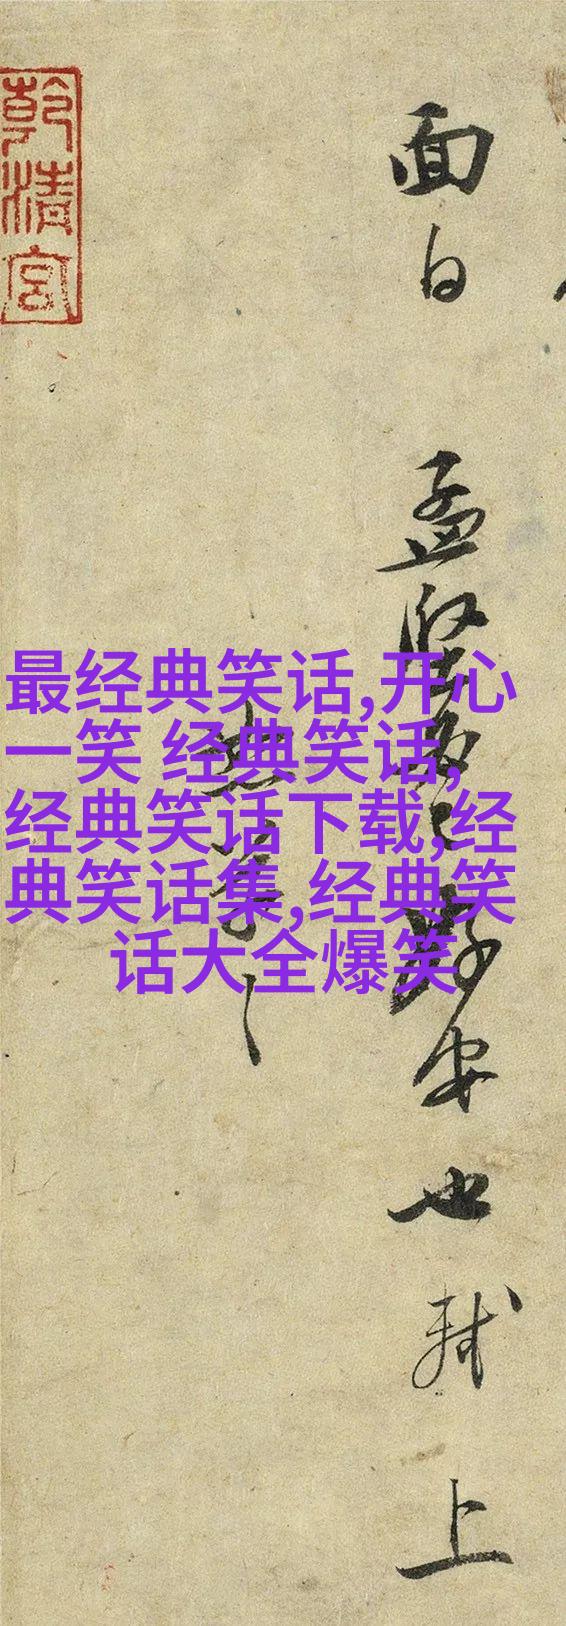 面白 孟堅
安也 軾 上
乾清宮
最经典笑话,开心
一笑 经典笑话,
经典笑话下载,经
典笑话集,经典笑
话大全爆笑